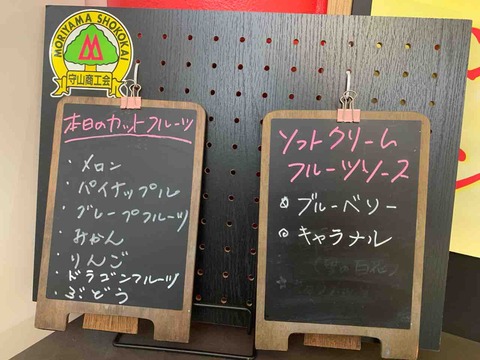 MORIYAMA SHOKOKAI
守山商工会
本日のカットフルーツ
・メロン
・パイナップル
・グレープフルーツ
・みかん
・りんご
・ドラゴンフルーツ
・ぶどう
ソフトクリーム
フルーツソース
◎ブルーベリー
◎キャラナル